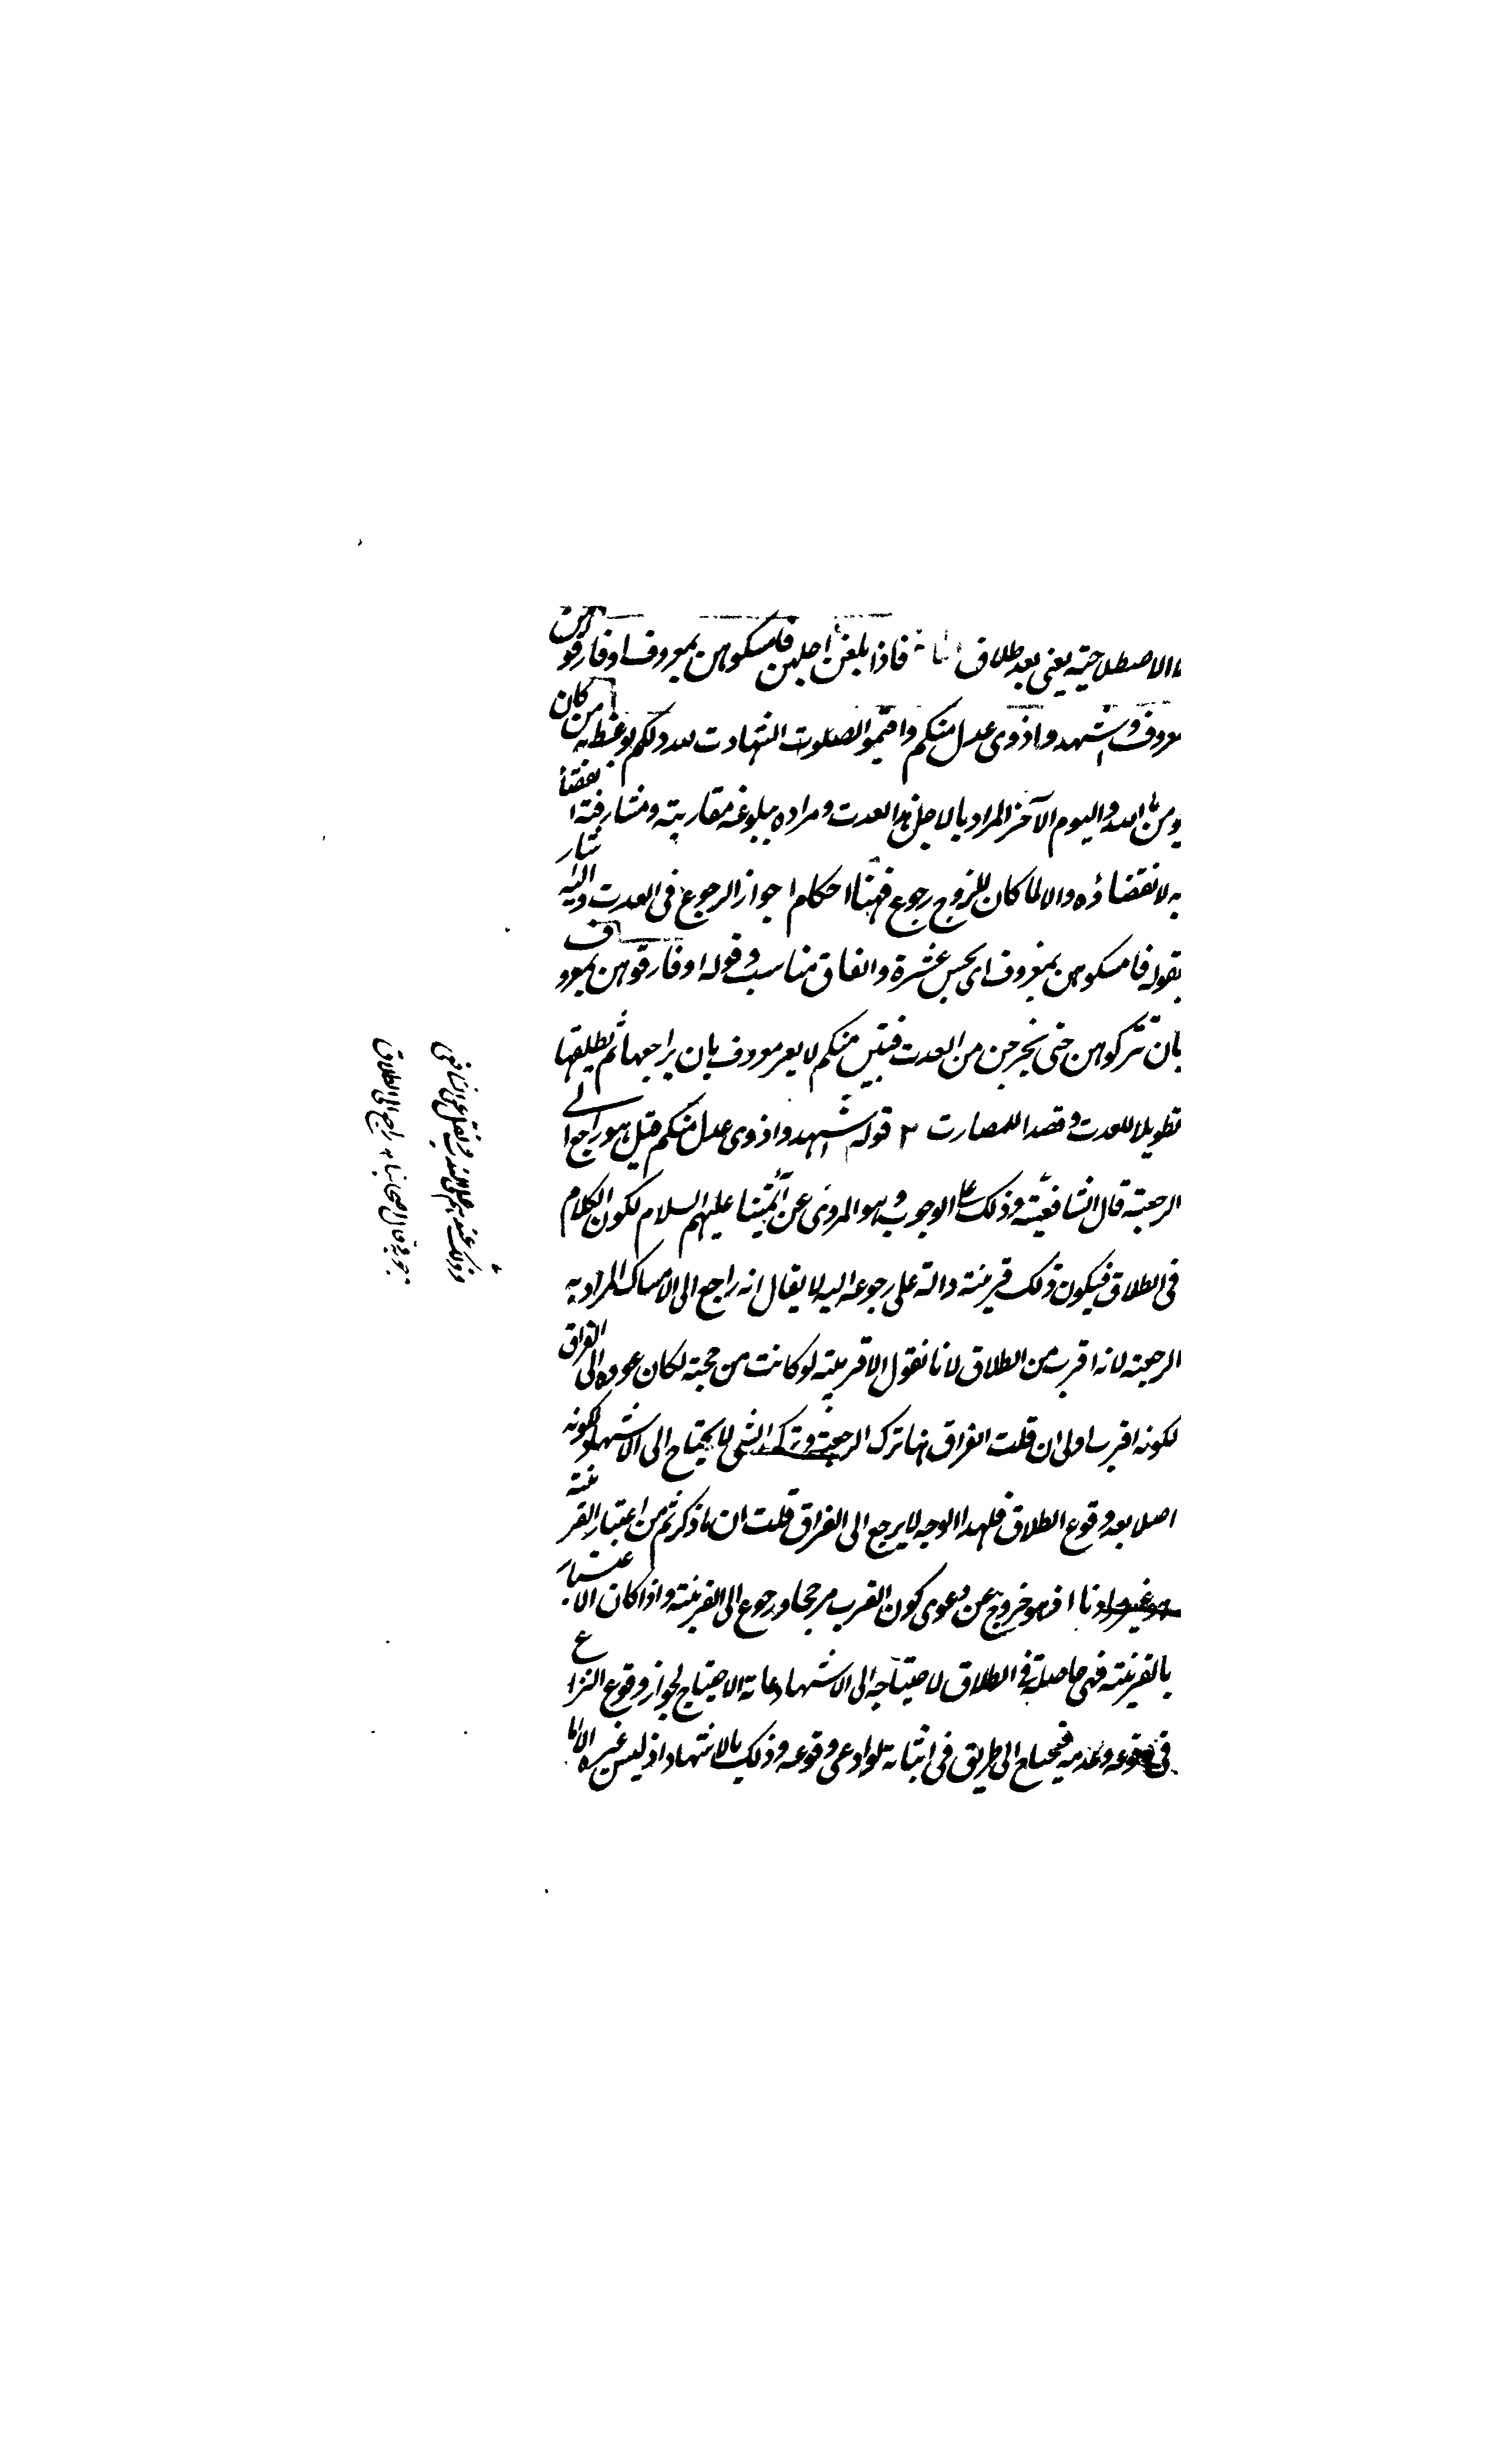 الاصطلاحية يعنى بعد طلاق فاذا بلغن اجلهن فامسكوهن بمعروف او فارقوهن
بمعروف واشهدوا ذوى عدل منكم واقيموا الشهادت لله ذلكم يوعظ به من كان
يومن بالله واليوم الآخر المراد بالاجل هذا العدت ومراده ببلوغه مقاربته ومشارفته
به لانقضاؤه والا لما كان للزوج رجوع فهنا احكام ا جواز الرجوع فى العدت واليه
بقوله فامسكوهن بمعروف اى بحسن عشرة وانفاق مناسب وقوله او فارقوهن بمعروف
بان تتركوهن حتى تخرجن من العدت فتبين منكم لا بغير معروف بان يراجعها ثم يطلقها
تطويلا للعدت وقصدا للمضارت ٢ قوله اشهدوا ذوى عدل منكم قيل هو راجع الى
الرجعة قال الشافعية وذلك على الوجوب وهو المروى عن ائمتنا عليهم السلام لكون الكلام
فى الطلاق فيكون ذلك قرينة دالة على رجوعه اليه لا يقال انه راجع الى الامساك المراد به
الرجعة لانه اقرب من الطلاق لانا نقول الاقربية لو كانت مرجحة لكان عوده الى الفراق
لكونه اقرب اولى ان قلت الفراق هنا ترك الرجعة وترك الشى لا يحتاج الى الاشهاد لكونه
اصلا بعد وقوع الطلاق فلهذا الوجه لا يرجع الى الفراق قلت ان ما ذكرتم من اعتبار القرينة
فهو خروج عن دعوى كون القرب مرجحا ورجوع الى القرينة واذا كان الاعتبار
بالقرينة فهى حاصلة فى الطلاق لاحتياجه الى الاشهاد غاية الاحتياج لجواز وقوع النزاع
فى وقوعه وعدمه فيحتاج الى طريق فى اثباته لو ادعى وقوعه وذلك بالاشهاد اذ ليس غيره